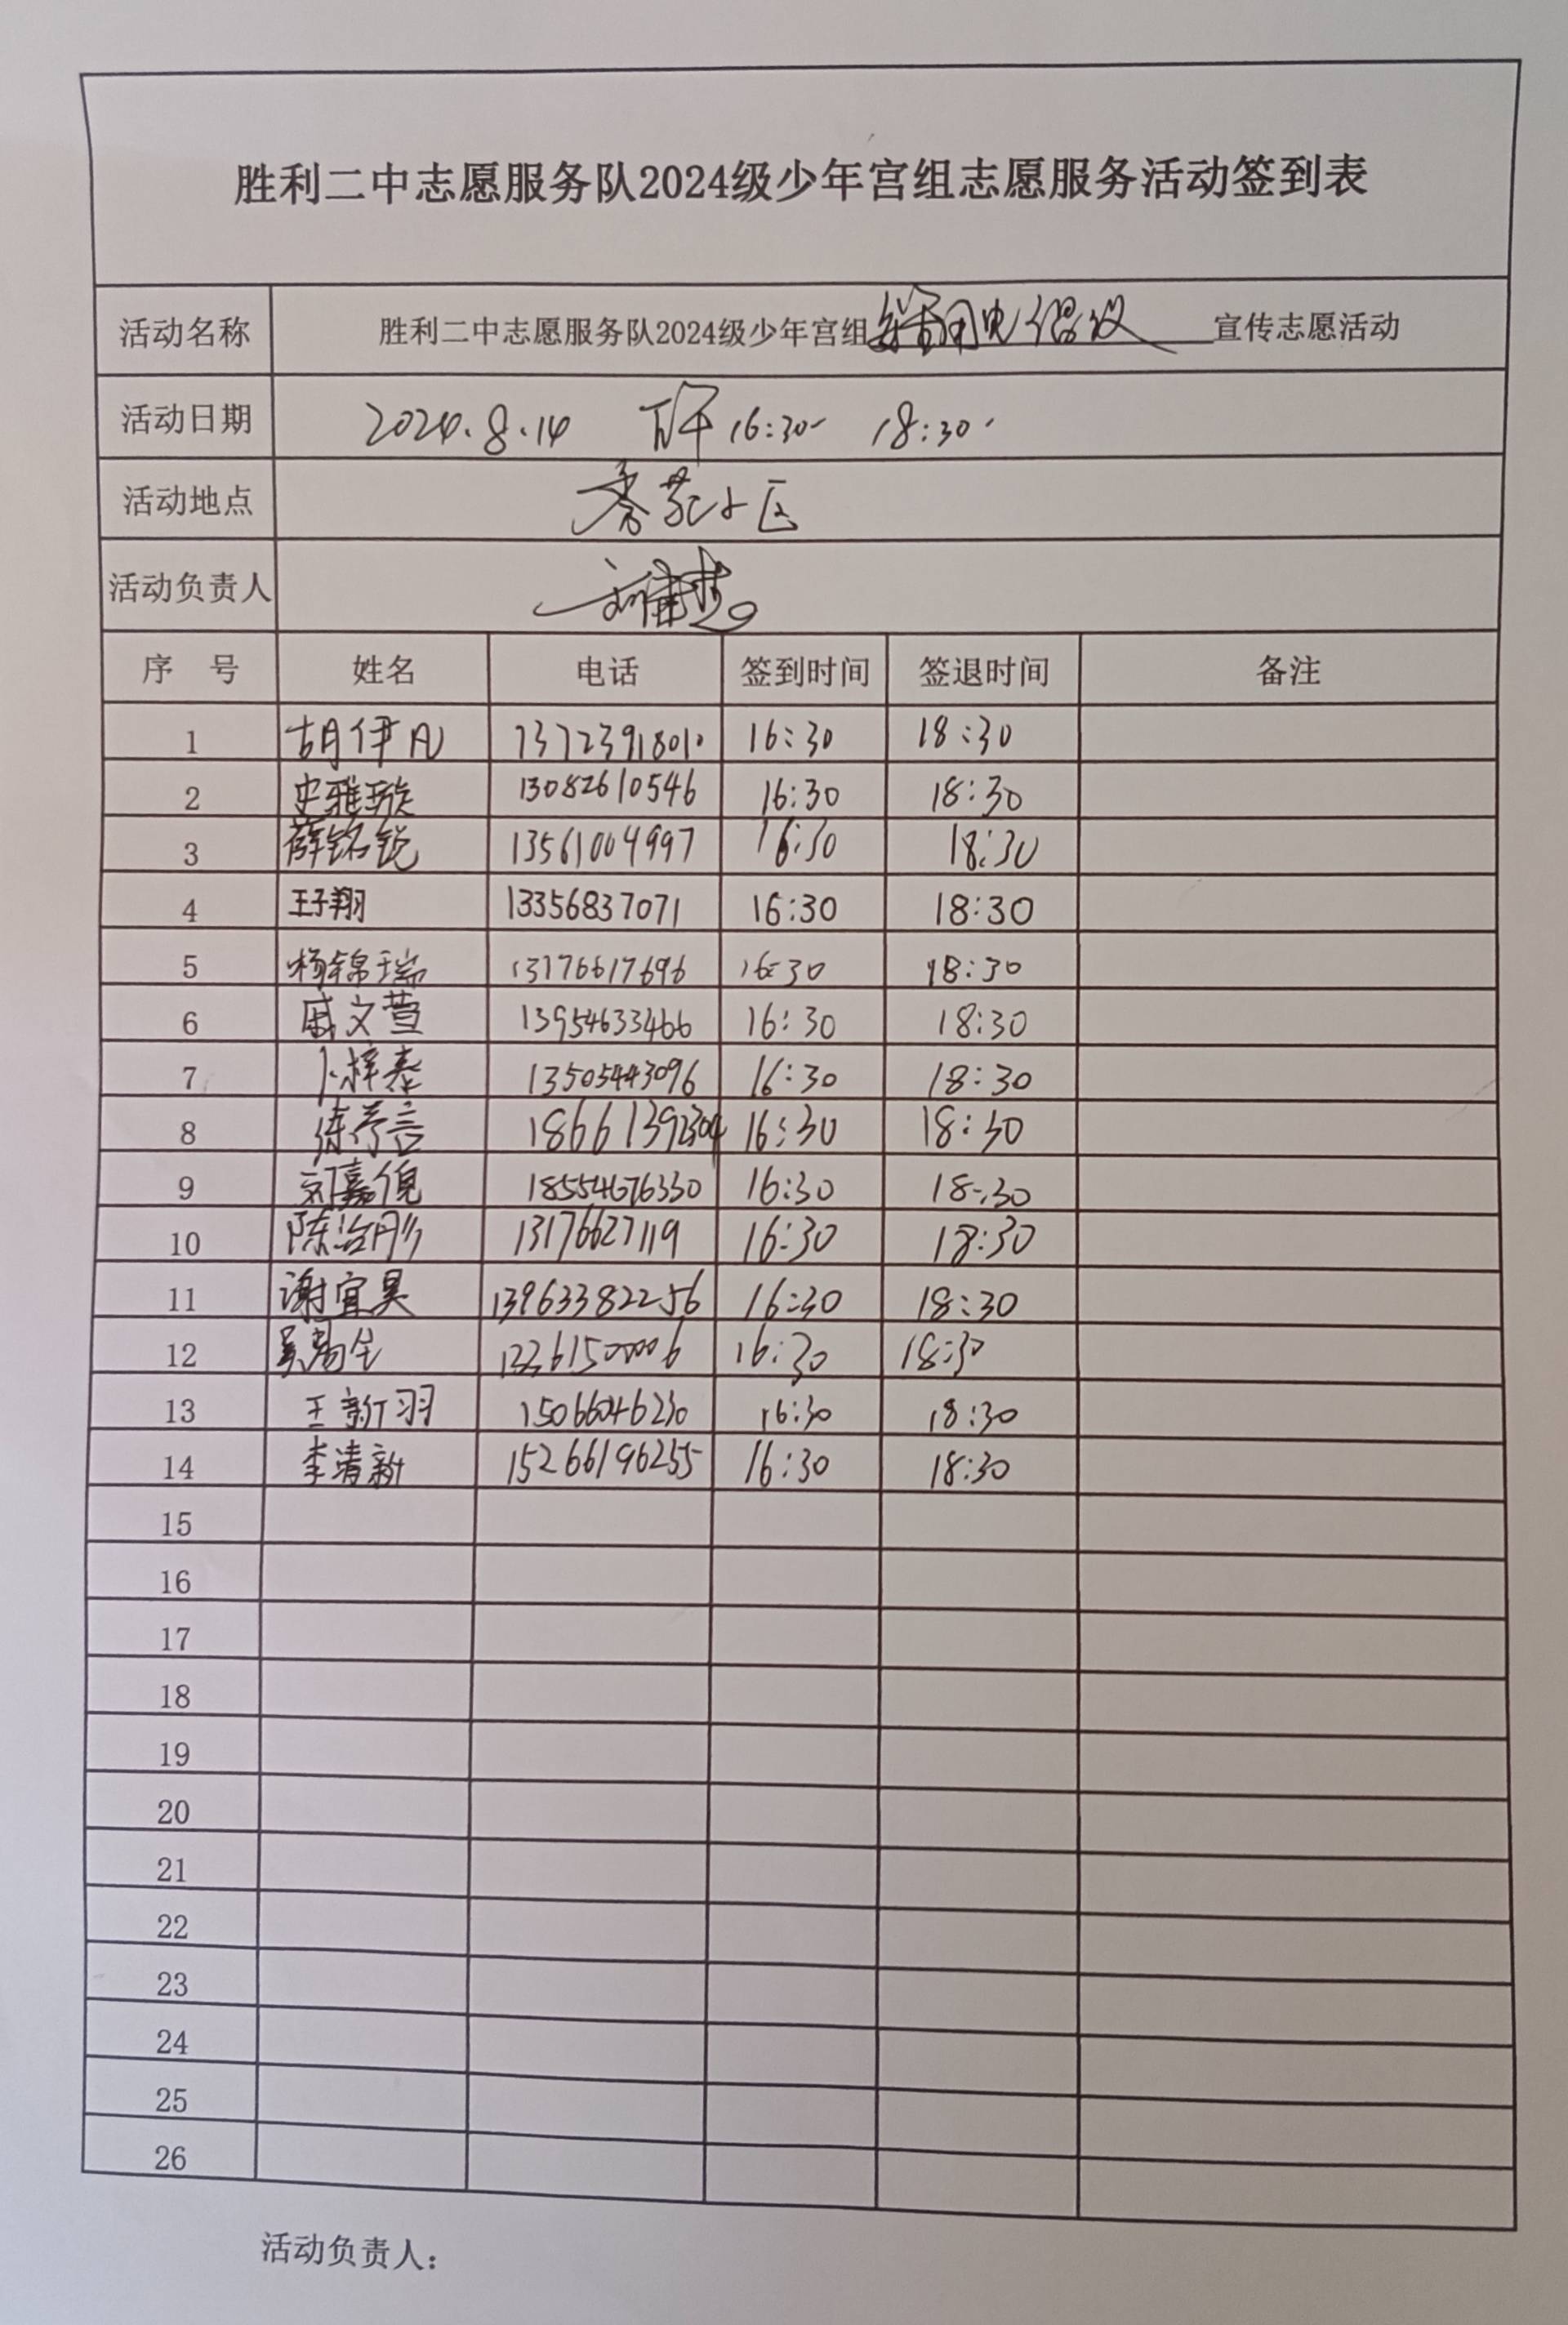 胜利二中志愿服务队2024级少年宫组志愿服务活动签到表
活动名称 胜利二中志愿服务队2024级少年宫组 用电倡议 宣传志愿活动
活动日期 2024.8.14 下午 16:30- 18:30.
活动地点 香苑小区
活动负责人
序 号 姓名 电话 签到时间 签退时间 备注
1 胡伊凡 13723918010 16:30 18:30
2 史雅璇 13082610546 16:30 18:30
3 薛铭锐 13561004997 16:30 18:30
4 王子翔 13356837071 16:30 18:30
5 杨锦瑞 13176617696 16:30 18:30
6 戚文萱 13954633466 16:30 18:30
7 卜梓泰 13505443096 16:30 18:30
8 18661392304 16:30 18:30
9 刘嘉倪 18554676330 16:30 18:30
10 陈治彤 13176627119 16:30 18:30
11 谢宜昊 13963382256 16:30 18:30
12 16:30 18:30
13 王新羽 15066046230 16:30 18:30
14 李清新 15266196255 16:30 18:30
15
16
17
18
19
20
21
22
23
24
25
26
活动负责人：